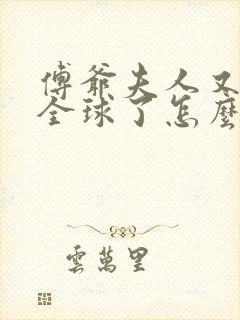 傅爺夫人又
全球了怎麼
雲萬里